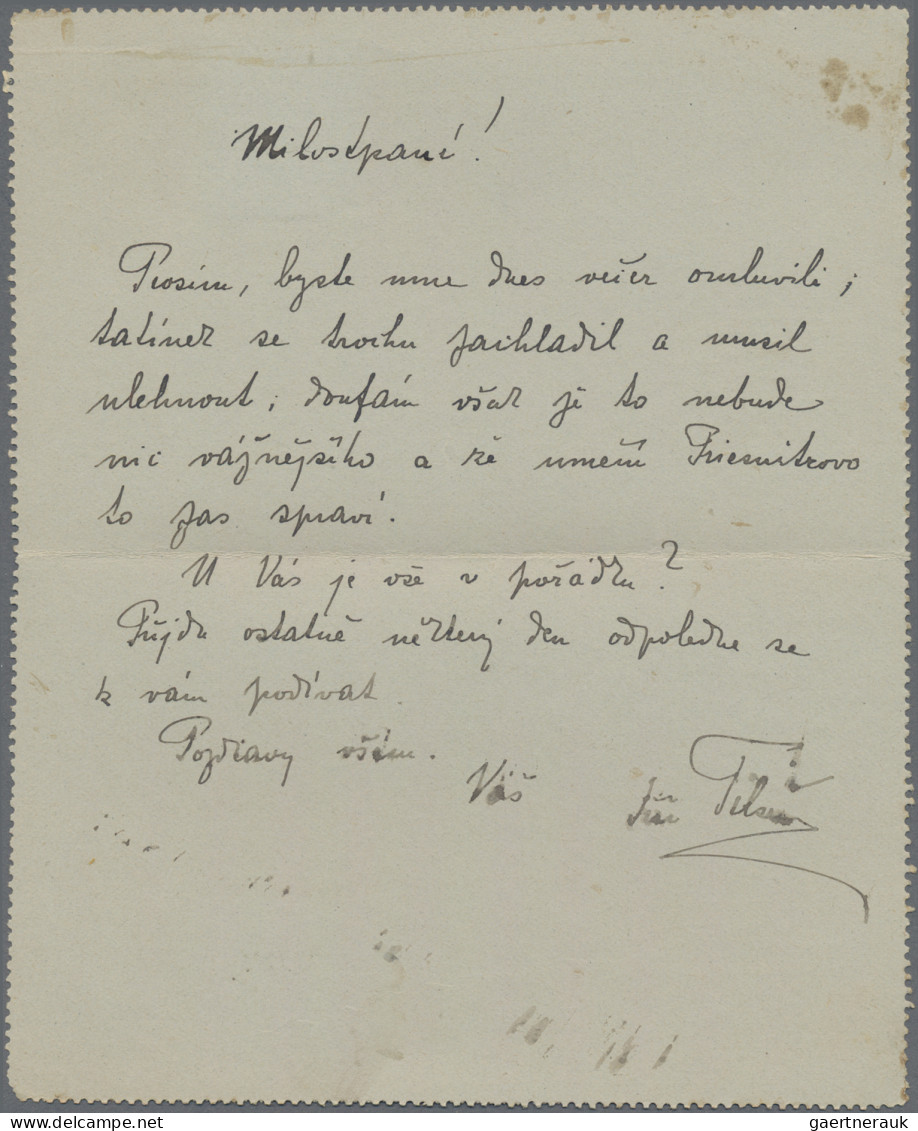 Milostpaní!
Prosím, byste mne dnes večer omluvili;
tatínek se trochu zachladil a musil
ulehnout; doufám však že to nebude
nic vážnějšího a že umění Priesnitzovo
to zas spraví.
U Vás je vše v pořádku?
Půjdu ostatně některý den odpoledne se
k vám podívat.
Pozdravy všem.
Váš
Jiří
gaertnerauk